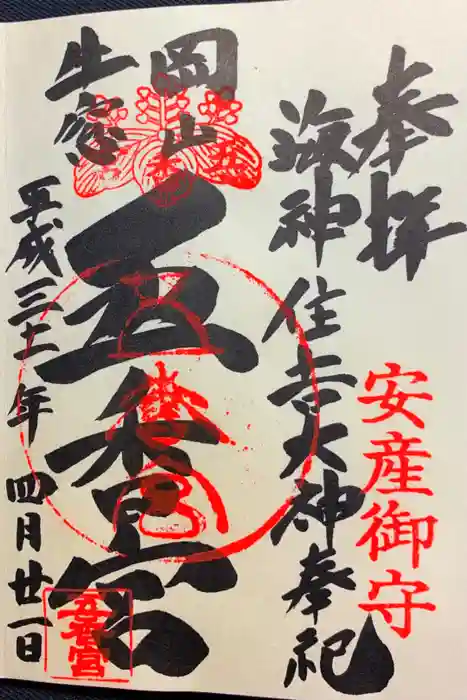 奉拝
海神 住吉大神奉祀
安産御守
岡山
牛窓
五香宮
平成三十一年 四月廿一日
五香宮